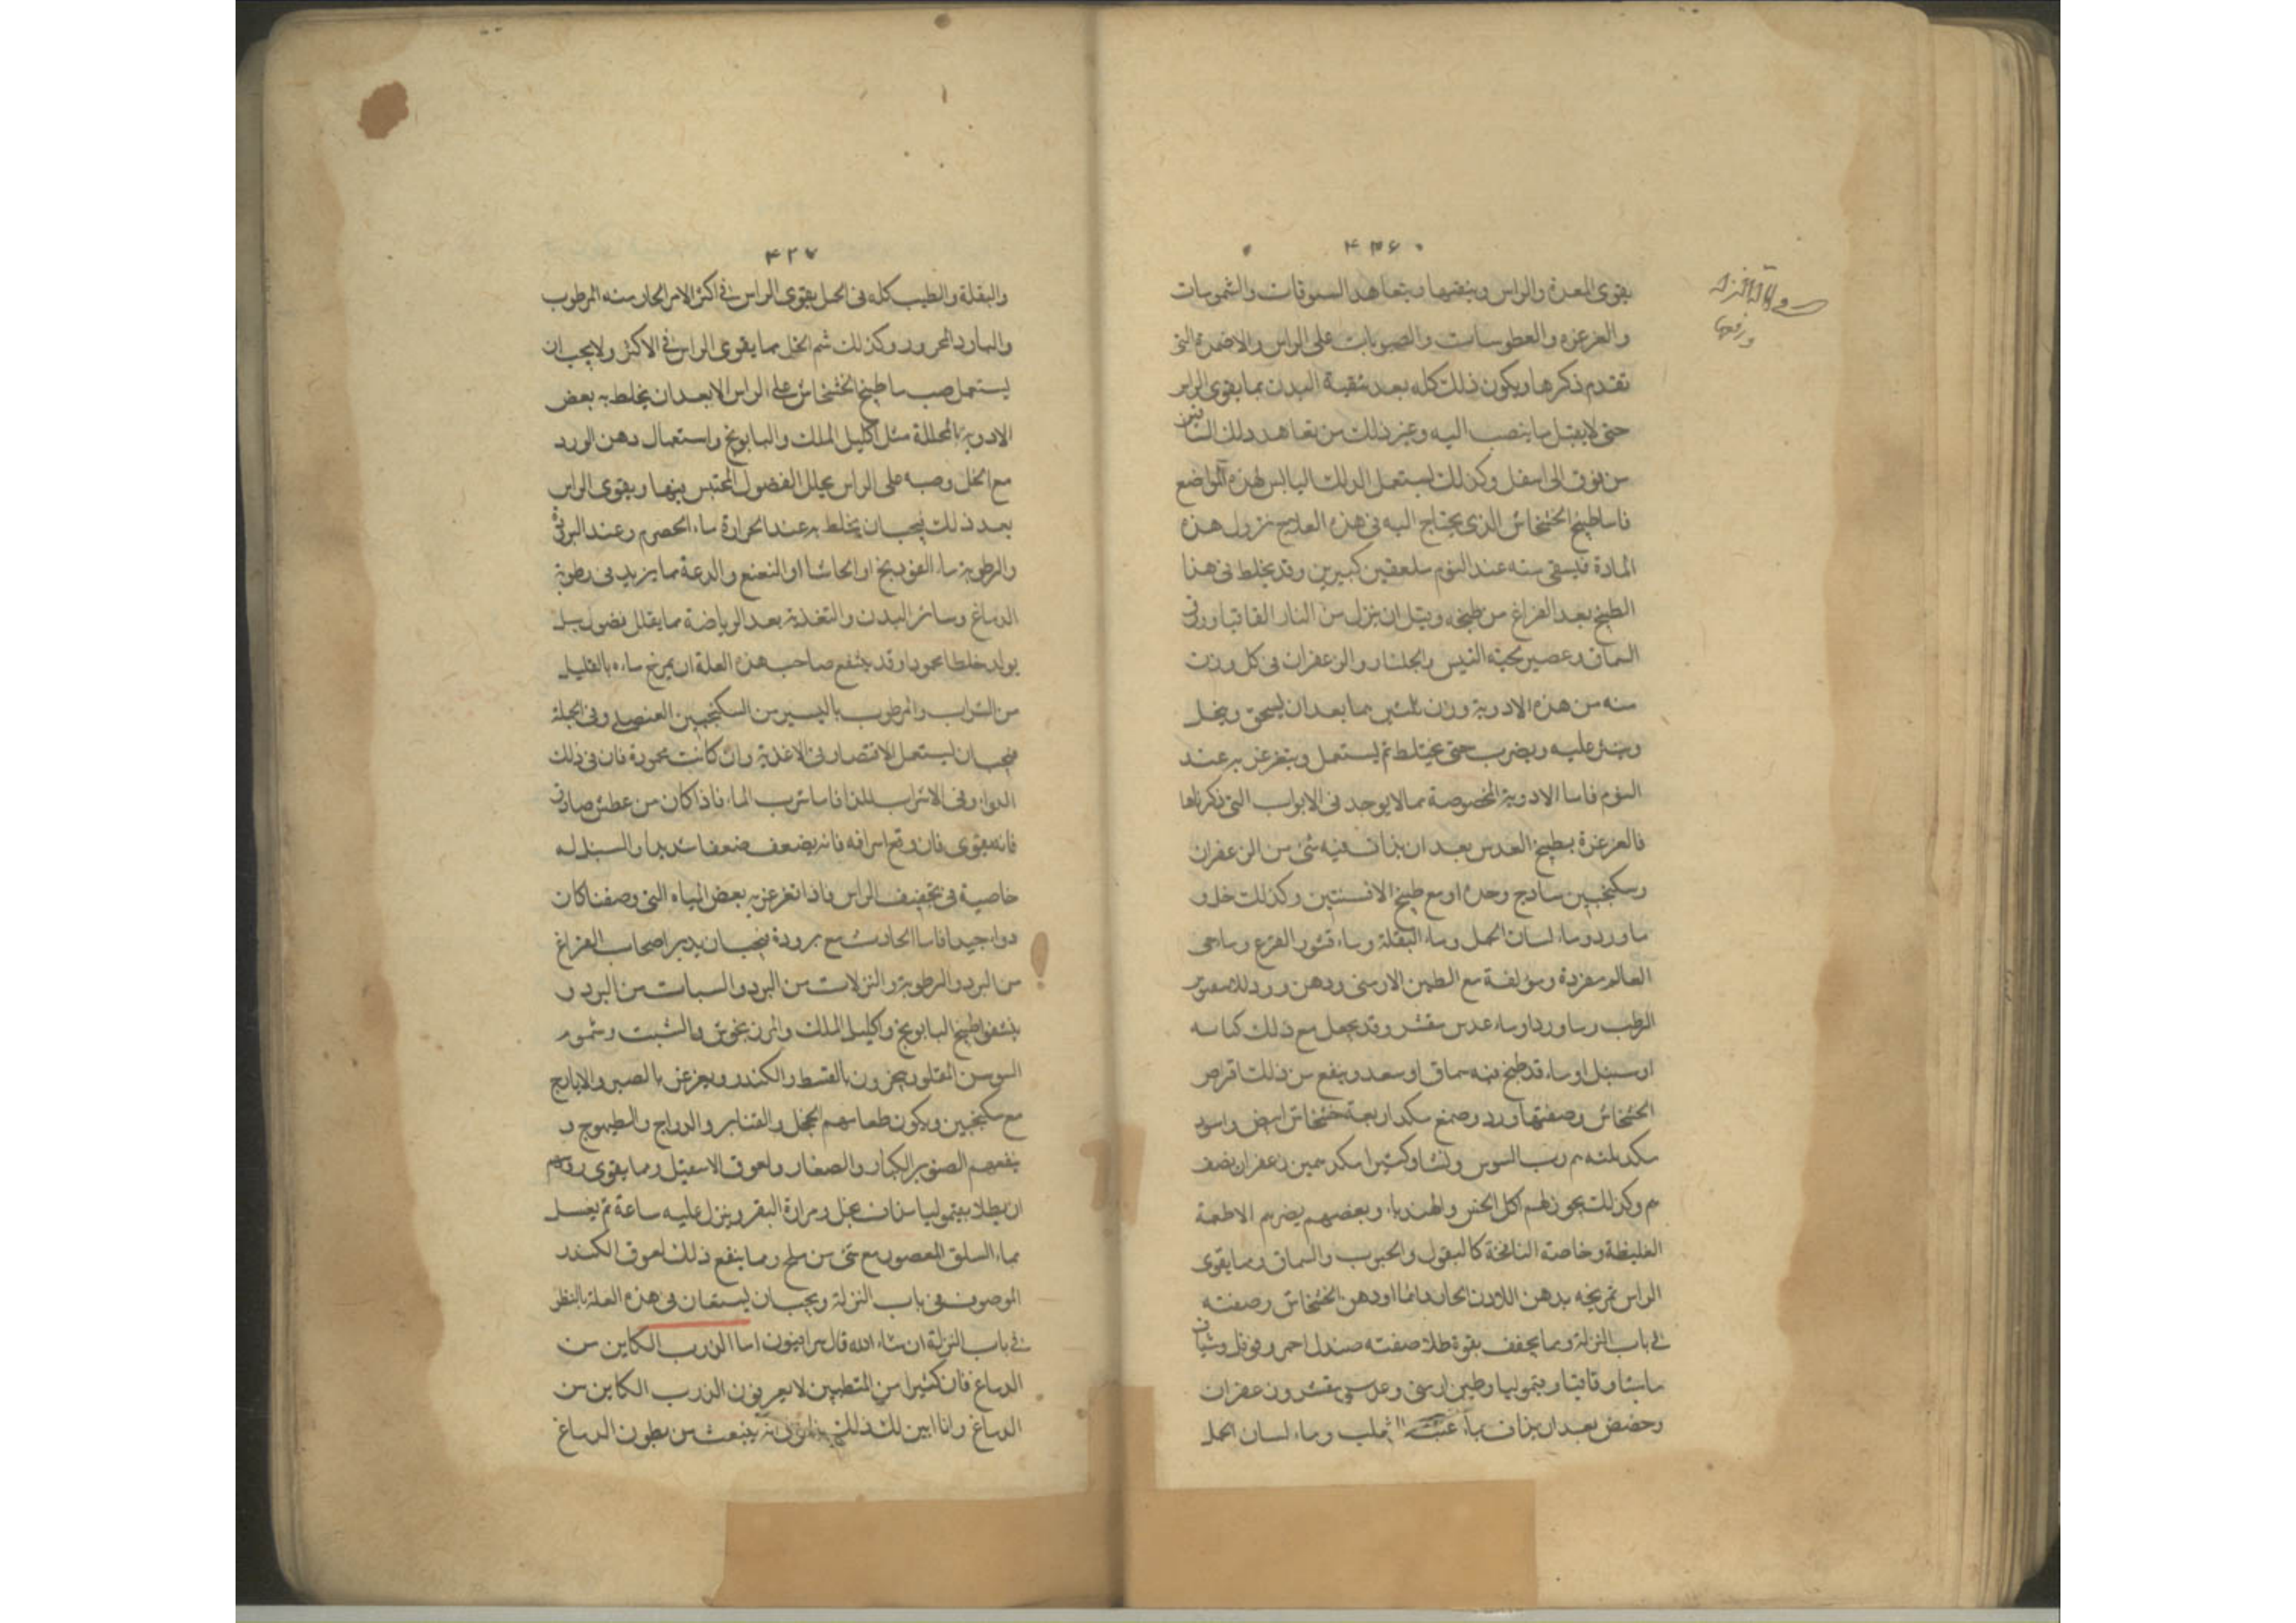 ۴۳۶
يقوى المعدة والراس وينقيها ويتعاهد السعوطات والشمومات
والغرغره والعطوسات والصبوبات على الراس والاضمدة التى
تقدم ذكرها ويكون ذلك كله بعد تنقية البدن مما يقوى الراس
حتى لا يقبل ما ينصب اليه وغير ذلك من تعاهد دلك الساقين
من فوق الى اسفل وكذلك يستعمل الدلك اليابس لهذه المواضع
فاما طبيخ الخشخاش الذى يحتاج اليه فى هذه العلاج نزول هذه
المادة فيسقى منه عند النوم ملعقتين كبيرين وقد يخلط فى هذا
الطبيخ بعد الفراغ من طبخه وقبل ان ينزل من النار القاقيا وورق
السماق وعصير لحية التيس والجلنار والزعفران فى كل وزن
منه من هذه الادوية وزن ثلثين مما بعد ان يسحق وينخل
وينثر عليه ويضرب حتى يختلط ثم يستعمل ويتغرغر به عند
النوم فاما الادوية المخصوصة مما لا يوجد فى الابواب التى ذكرناها
فالغرغرة بطبيخ العدس بعد ان يذاف فيه شئ من الزعفران
وسكنجبين ساذج وحده او مع طبيخ الافسنتين وكذلك خل و
ماورد وماء لسان الحمل وماء البقلة وماء قشور القرع وماء حى
العالم مفردة ومؤلفة مع الطين الارمنى ودهن ورد
الرطب وماورد او ماء عدس مقشر وقد يجعل مع ذلك
او سنبل او ماء قد طبخ فيه سماق او سعد وينفع من ذلك اقراص
الخشخاش وصفتها ورد وصمغ مكد اربعة خشخاش ابيض واسود
مكد ثلثه م رب السوس ونشا وكثيرا مكد مين زعفران نصف
م وكذلك يجوز لهم اكل الخس والهندباء وبعضهم يضرهم الاطعمة
الغليظة وخاصة النافخة كالبقول والحبوب والسماق ومما يقوى
الراس تمريخه بدهن اللادن الحار دائما او دهن الخشخاش وصفته
فى باب النزلة ومما يجفف بقوة طلا صفته صندل احمر وفوفل وشياف
ماميثا وقاقيا وقيموليا وطين ارمنى وعدس مقشر وزعفران
وحضض بعد ان يذاف بماء عنب الثعلب وماء لسان الحمل
۴۳۷
والبقلة والطيب كله فى الخل يقوى الراس فى اكثر الامر الحار منه المرطوب
والبارد المحرور وكذلك شم الخل مما يقوى الراس فى الاكثر ولا يجب ان
يستعمل صب ماء طبيخ الخشخاش على الراس الا بعد ان يخلط به بعض
الادوية المحللة مثل اكليل الملك والبابونج واستعمال دهن الورد
مع الخل وصبه على الراس يحلل الفضول المحتبس فيها ويقوى الراس
بعد ذلك فيجب ان يخلط به عند الحرارة ماء الحصرم وعند البرد
والرطوبة ماء الفودنج او الحاشا او النعنع والدعة مما يزيد فى رطوبة
الدماغ وسائر البدن والتغذية بعد الرياضة مما يقلل فضول بل
يولد خلطا محمودا وقد ينتفع صاحب هذه العلة ان يمزج ماءه بالقليل
من الشراب والمرطوب باليسير من السكنجبين العنصلى وفى الجملة
فيجب ان يستعمل الاقتصار فى الاغذية وان كانت محمودة فان فى ذلك
الدواء وفى الاشراب للذا فاما شرب الماء فاذا كان من عطش صادق
فانه يقوى فان وقع اسرافه فانه يضعف ضعفا شديدا والسنبل له
خاصية فى تجفيف الراس فاذا تغرغر به بعض المياه التى وصفنا كان
دواء جيدا فاما الحادث مع برودة فيجب ان يدبر اصحاب الفراغ
من البرد والرطوبة والنزلات من البرد والسبات من البرد و
ينشقوا طبيخ البابونج واكليل الملك والمرزنجوش والشبت وشموم
السوسن المقلو ويبخرون بالقسط والكندر ويغرغر بالصبر والايارج
مع سكنجبين ويكون طعامهم الحجل والقنابر والدراج والطيهوج و
ينفعهم الصنوبر الكبار والصغار ولعوق الاسقيل ومما يقوى روسهم
ان يطلا بقيموليا مذاف بخل ومرارة البقر وينزل عليه ساعة ثم يغسل
بماء السلق المعصور مع شئ من ملح ومما ينفع ذلك لعوق الكندر
الموصوف فى باب النزلة ويجب ان يستعان فى هذه العلة بالنظر
فى باب النزلة ان شاء الله قال سرافيون اما الذرب الكاين من
الدماغ فان كثيرا من المتطببين لا يعرفون الذرب الكاين من
الدماغ وانا ابين لك ذلك ينبعث من بطون الدماغ